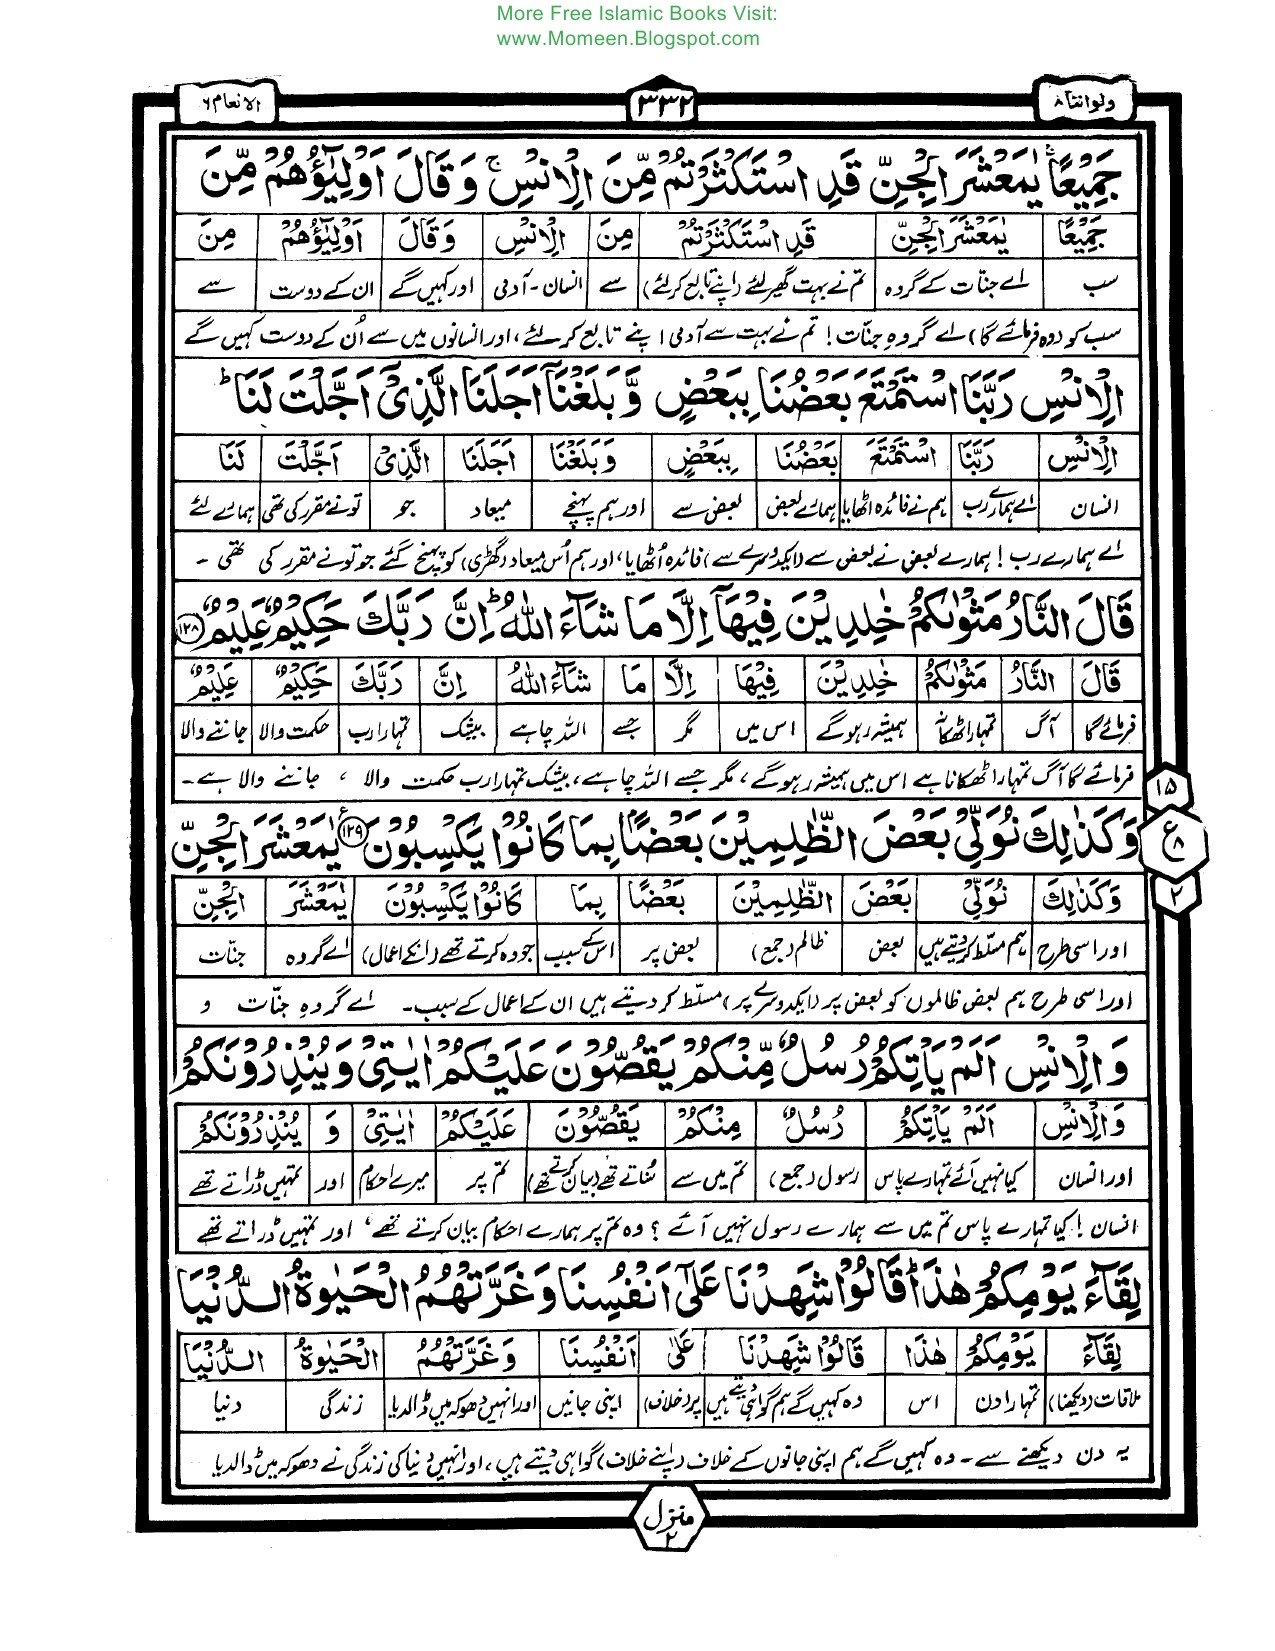 More Free Islamic Books Visit:
www.Momeen.Blogspot.com
ولواننا ۸
۳۳۲
الانعام ۶
جَمِيْعًا ۚ يٰمَعْشَرَ الْجِنِّ قَدِ اسْتَكْثَرْتُمْ مِّنَ الْاِنْسِ ۚ وَقَالَ اَوْلِيٰٓؤُهُمْ مِّنَ
جَمِيْعًا يٰمَعْشَرَ الْجِنِّ قَدِ اسْتَكْثَرْتُمْ مِنَ الْاِنْسِ وَقَالَ اَوْلِيٰٓؤُهُمْ مِنَ
سب اے جنّات کے گروہ تم نے بہت گھیر لئے (اپنے تابع کر لئے) سے انسان - آدمی اور کہیں گے ان کے دوست سے
سب کو (وہ فرمائے گا) اے گروہِ جنّات! تم نے بہت سے آدمی اپنے تابع کر لئے، اور انسانوں میں سے اُن کے دوست کہیں گے
الْاِنْسِ رَبَّنَا اسْتَمْتَعَ بَعْضُنَا بِبَعْضٍ وَّبَلَغْنَآ اَجَلَنَا الَّذِيْٓ اَجَّلْتَ لَنَا ؕ
الْاِنْسِ رَبَّنَا اسْتَمْتَعَ بَعْضُنَا بِبَعْضٍ وَبَلَغْنَا اَجَلَنَا الَّذِيْ اَجَّلْتَ لَنَا
انسان اے ہمارے رب ہم نے فائدہ اٹھایا ہمارے بعض بعض سے اور ہم پہنچے میعاد جو تونے مقرر کی تھی ہمارے لئے
اے ہمارے رب! ہمارے بعض نے بعض سے (ایکدوسرے سے) فائدہ اُٹھایا، اور ہم اُس میعاد (گھڑی) کو پہنچ گئے جو تونے مقرر کی تھی -
قَالَ النَّارُ مَثْوٰىكُمْ خٰلِدِيْنَ فِيْهَآ اِلَّا مَا شَآءَ اللّٰهُ ؕ اِنَّ رَبَّكَ حَكِيْمٌ عَلِيْمٌ ۱۲۸
قَالَ النَّارُ مَثْوٰىكُمْ خٰلِدِيْنَ فِيْهَا اِلَّا مَا شَآءَ اللّٰهُ اِنَّ رَبَّكَ حَكِيْمٌ عَلِيْمٌ
فرمائے گا آگ تمہارا ٹھکانہ ہمیشہ رہو گے اس میں مگر جسے اللہ چاہے بیشک تمہارا رب حکمت والا جاننے والا
فرمائے گا آگ تمہارا ٹھکانا ہے اس میں ہمیشہ رہو گے، مگر جسے اللہ چاہے، بیشک تمہارا رب حکمت والا، جاننے والا ہے -
۱۵
وَكَذٰلِكَ نُوَلِّيْ بَعْضَ الظّٰلِمِيْنَ بَعْضًۢا بِمَا كَانُوْا يَكْسِبُوْنَ ۱۲۹ يٰمَعْشَرَ الْجِنِّ
ع ۸
۲
وَكَذٰلِكَ نُوَلِّيْ بَعْضَ الظّٰلِمِيْنَ بَعْضًا بِمَا كَانُوْا يَكْسِبُوْنَ يٰمَعْشَرَ الْجِنِّ
اور اسی طرح ہم مسلط کر دیتے ہیں بعض ظالم (جمع) بعض پر اس کے سبب جو وہ کرتے تھے (انکے اعمال) اے گروہ جنّات
اور اسی طرح ہم بعض ظالموں کو بعض پر (ایکدوسرے پر) مسلّط کر دیتے ہیں ان کے اعمال کے سبب - اے گروہِ جنّات و
وَالْاِنْسِ اَلَمْ يَاْتِكُمْ رُسُلٌ مِّنْكُمْ يَقُصُّوْنَ عَلَيْكُمْ اٰيٰتِيْ وَيُنْذِرُوْنَكُمْ
وَالْاِنْسِ اَلَمْ يَاْتِكُمْ رُسُلٌ مِنْكُمْ يَقُصُّوْنَ عَلَيْكُمْ اٰيٰتِيْ وَ يُنْذِرُوْنَكُمْ
اور انسان کیا نہیں آئے تمہارے پاس رسول (جمع) تم میں سے سُناتے تھے (بیان کرتے تھے) تم پر میرے احکام اور تمہیں ڈراتے تھے
انسان! کیا تمہارے پاس تم میں سے ہمارے رسول نہیں آئے؟ وہ تم پر ہمارے احکام بیان کرتے تھے، اور تمہیں ڈراتے تھے
لِقَآءَ يَوْمِكُمْ هٰذَا ؕ قَالُوْا شَهِدْنَا عَلٰٓى اَنْفُسِنَا وَغَرَّتْهُمُ الْحَيٰوةُ الدُّنْيَا
لِقَآءَ يَوْمِكُمْ هٰذَا قَالُوْا شَهِدْنَا عَلٰٓى اَنْفُسِنَا وَغَرَّتْهُمُ الْحَيٰوةُ الدُّنْيَا
ملاقات (دیکھنا) تمہارا دن اس وہ کہیں گے ہم گواہی دیتے ہیں پر (خلاف) اپنی جانیں اور انہیں دھوکہ میں ڈالدیا زندگی دنیا
یہ دن دیکھنے سے - وہ کہیں گے ہم اپنی جانوں کے خلاف (اپنے خلاف) گواہی دیتے ہیں، اور انہیں دنیا کی زندگی نے دھوکہ میں ڈالدیا
منزل ۲